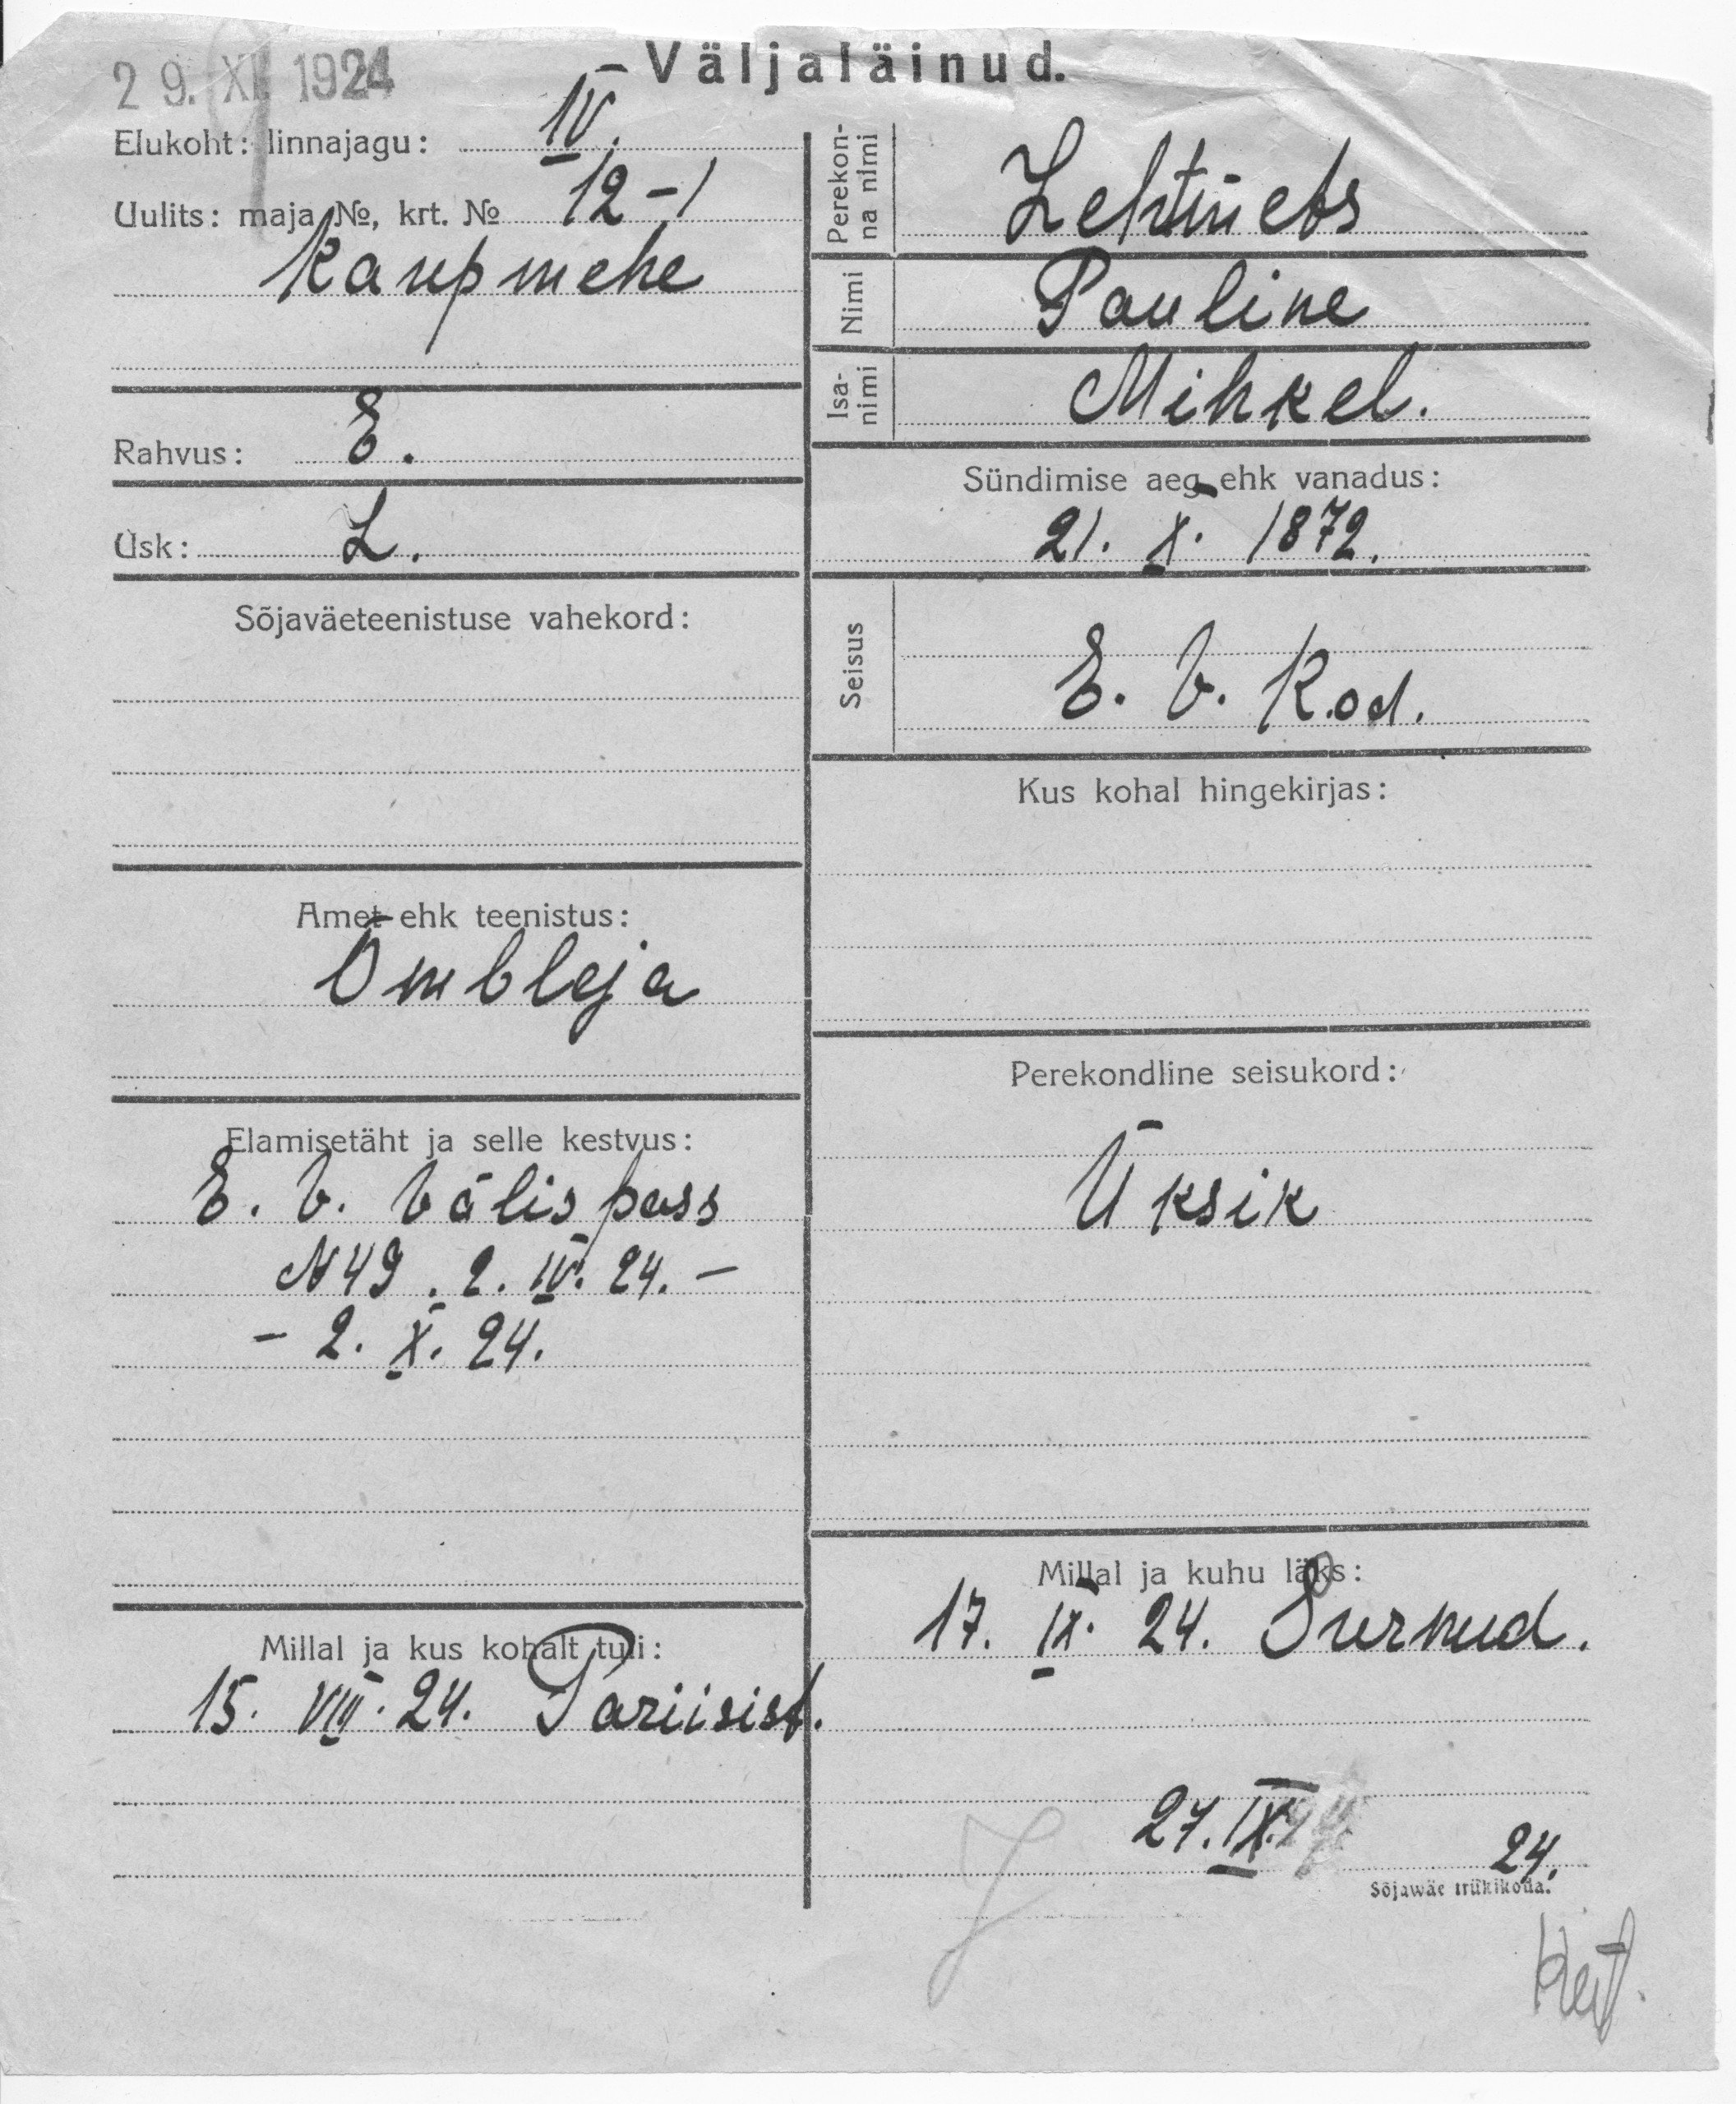 29. XI. 1924
Väljaläinud.
Elukoht: linnajagu: IV.
Uulits: maja №, krt. № 12-1
Kaupmehe
Rahvus: E.
Usk: L.
Sõjaväeteenistuse vahekord:
Amet ehk teenistus:
Õmbleja
Elamisetäht ja selle kestvus:
E. V. Välispass
N49. 2. IV. 24. –
– 2. X. 24.
Millal ja kus kohalt tuli:
15. VIII. 24. Pariisist.
Perekon-
na nimi
Nimi Pauline
Isa-
nimi Mihkel.
Sündimise aeg ehk vanadus:
21. X. 1872.
Seisus E. V. Kod.
Kus kohal hingekirjas:
Perekondline seisukord:
Üksik
Millal ja kuhu läks:
17. IX. 24. Surnud.
27. IX. 24.
Sõjawäe trükikoda.